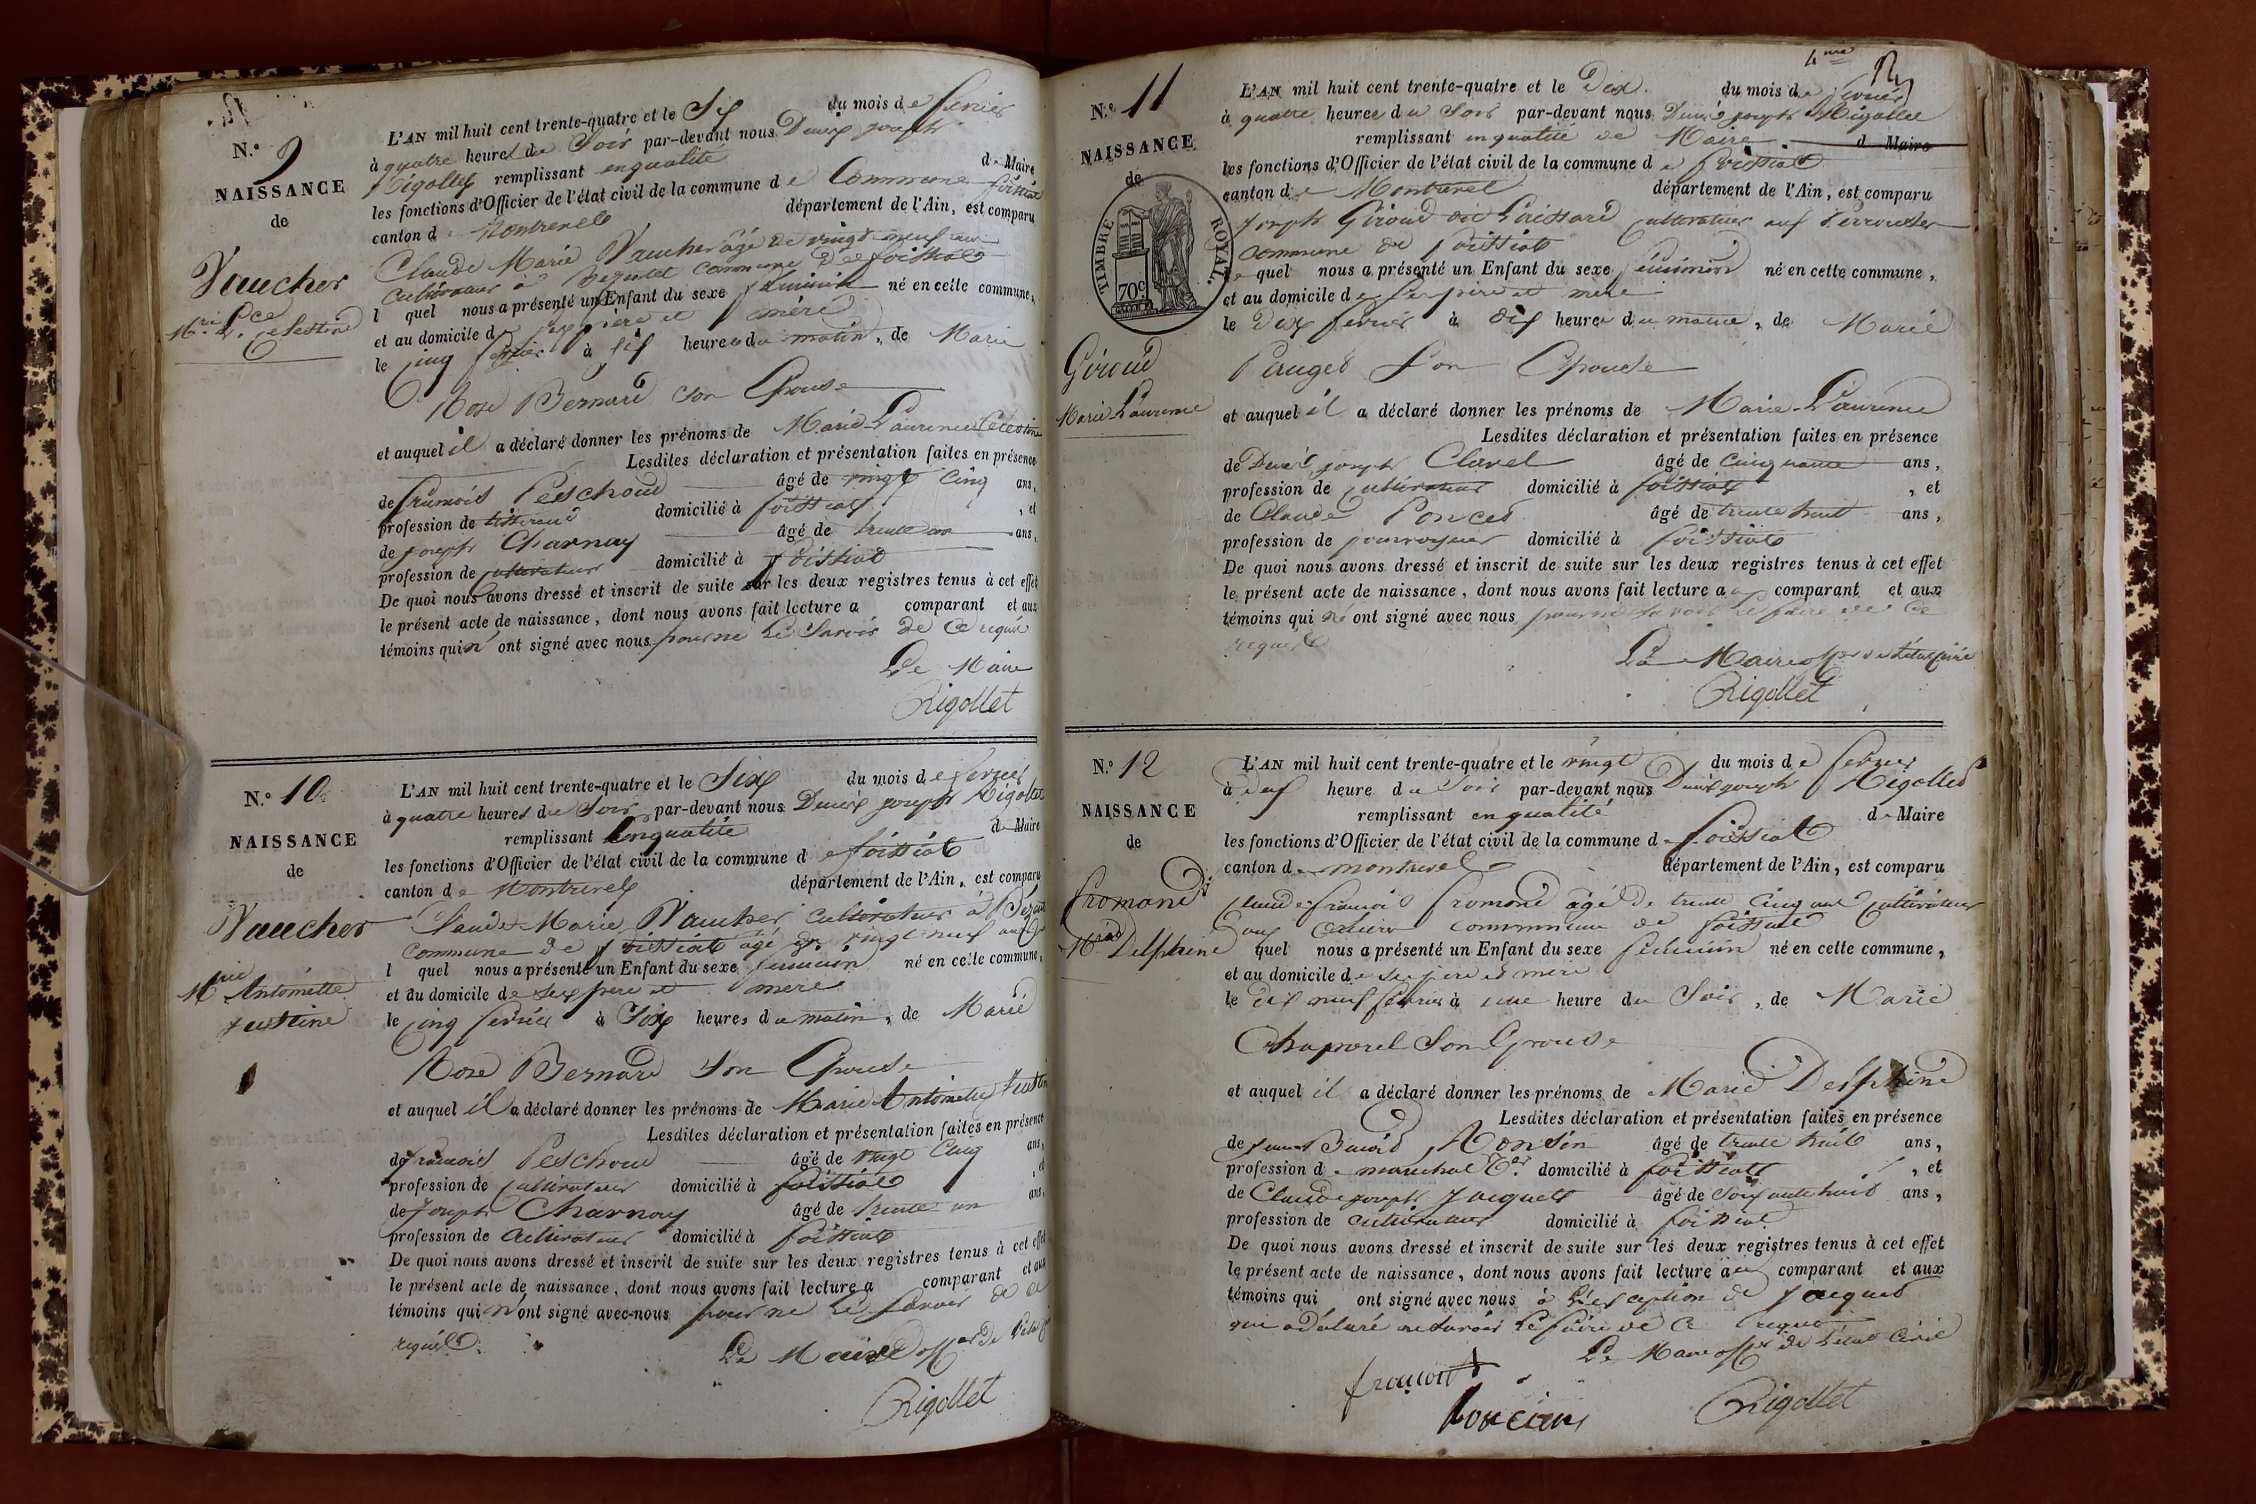 N.o 9
NAISSANCE
de
Vaucher
Mrie L.ce Celestine
L'AN mil huit cent trente-quatre et le Six du mois de fevrier
à quatre heures du Soir par-devant nous Denis joseph
Rigollet remplissant en qualité de Maire
les fonctions d'Officier de l'état civil de la commune de Commune foissiat
canton de Montrevel département de l'Ain, est comparu
Claude Marie Vaucher âgé de vingt neuf ans
Cultivateur à commune de foissiat
l quel nous a présenté un Enfant du sexe féminin né en cette commune,
et au domicile de ses père et mère
le cinq fevrier à six heures du matin, de Marie
Rose Bernard son Epouse
et auquel il a déclaré donner les prénoms de Marie Laurence Celestine
Lesdites déclaration et présentation faites en présence
de françois Peschoud âgé de vingt cinq ans,
profession de tisserand domicilié à foissiat, et
de joseph Charnay âgé de trente un ans,
profession de cultivateur domicilié à foissiat
De quoi nous avons dressé et inscrit de suite sur les deux registres tenus à cet effet
le présent acte de naissance, dont nous avons fait lecture a comparant et aux
témoins qui n'ont signé avec nous pour ne le Savoir de ce requis
Le Maire
Rigollet
N.o 10
NAISSANCE
de
Vaucher
Mrie Antoinette
justine
L'AN mil huit cent trente-quatre et le Six du mois de fevrier
à quatre heures du Soir par-devant nous Denis joseph Rigollet
remplissant en qualité de Maire
les fonctions d'Officier de l'état civil de la commune de foissiat
canton de Montrevel département de l'Ain, est comparu
Claude Marie Vaucher cultivateur à
commune de foissiat âgé de vingt neuf ans
l quel nous a présenté un Enfant du sexe feminin né en cette commune,
et au domicile de ses pere et mere
le cinq fevrier à Six heures du matin, de Marie
Rose Bernard son Epouse
et auquel il a déclaré donner les prénoms de Marie Antoinette
Lesdites déclaration et présentation faites en présence
de françois Peschoud âgé de vingt cinq ans,
profession de cultivateur domicilié à foissiat, et
de Joseph Charnay âgé de trente un ans,
profession de cultivateur domicilié à foissiat
De quoi nous avons dressé et inscrit de suite sur les deux registres tenus à cet effet
le présent acte de naissance, dont nous avons fait lecture a comparant et aux
témoins qui n'ont signé avec nous pour ne le Savoir de ce
requis
Le Maire off.er de l'état
Rigollet
4me
N.o 11
NAISSANCE
de
TIMBRE ROYAL.
70c
Giroud
Marie Laurence
L'AN mil huit cent trente-quatre et le Dix du mois de fevrier
à quatre heures du Soir par-devant nous Denis joseph Rigollet
remplissant en qualité de Maire d Maire
les fonctions d'Officier de l'état civil de la commune de foissiat
canton de Montrevel département de l'Ain, est comparu
Joseph Giroud cultivateur
commune de foissiat
le quel nous a présenté un Enfant du sexe féminin né en cette commune,
et au domicile de ses père et mere
le Dix fevrier à dix heures du matin, de Marie
Pauget son Epouse
et auquel il a déclaré donner les prénoms de Marie Laurence
Lesdites déclaration et présentation faites en présence
de Denis joseph Clavel âgé de cinquante ans,
profession de cultivateur domicilié à foissiat, et
de Claude Poncet âgé de trente huit ans,
profession de domicilié à foissiat
De quoi nous avons dressé et inscrit de suite sur les deux registres tenus à cet effet
le présent acte de naissance, dont nous avons fait lecture au comparant et aux
témoins qui n'ont signé avec nous pour ne savoir le faire de ce
requis
Le Maire
Rigollet
N.o 12
NAISSANCE
de
fromond
Mrie Delphine
L'AN mil huit cent trente-quatre et le vingt du mois de fevrier
à heure du Soir par-devant nous Denis joseph Rigollet
remplissant en qualité de Maire
les fonctions d'Officier de l'état civil de la commune de foissiat
canton de montrevel département de l'Ain, est comparu
Claude françois fromond âgé de trente cinq ans cultivateur
commune de foissiat
quel nous a présenté un Enfant du sexe feminin né en cette commune,
et au domicile de ses pere et mere
le dix neuf fevrier à une heure du Soir, de Marie
Chaparel son Epouse
et auquel il a déclaré donner les prénoms de Marie Delphine
Lesdites déclaration et présentation faites en présence
de Benoit Roncin âgé de trente huit ans,
profession de marechal domicilié à foissiat, et
de Claude joseph jacquet âgé de soixante huit ans,
profession de cultivateur domicilié à foissiat
De quoi nous avons dressé et inscrit de suite sur les deux registres tenus à cet effet
le présent acte de naissance, dont nous avons fait lecture au comparant et aux
témoins qui ont signé avec nous à l'exception de jacquet
qui a déclaré ne Savoir le faire de ce requis
Le Maire off.er de l'état Civil
Rigollet